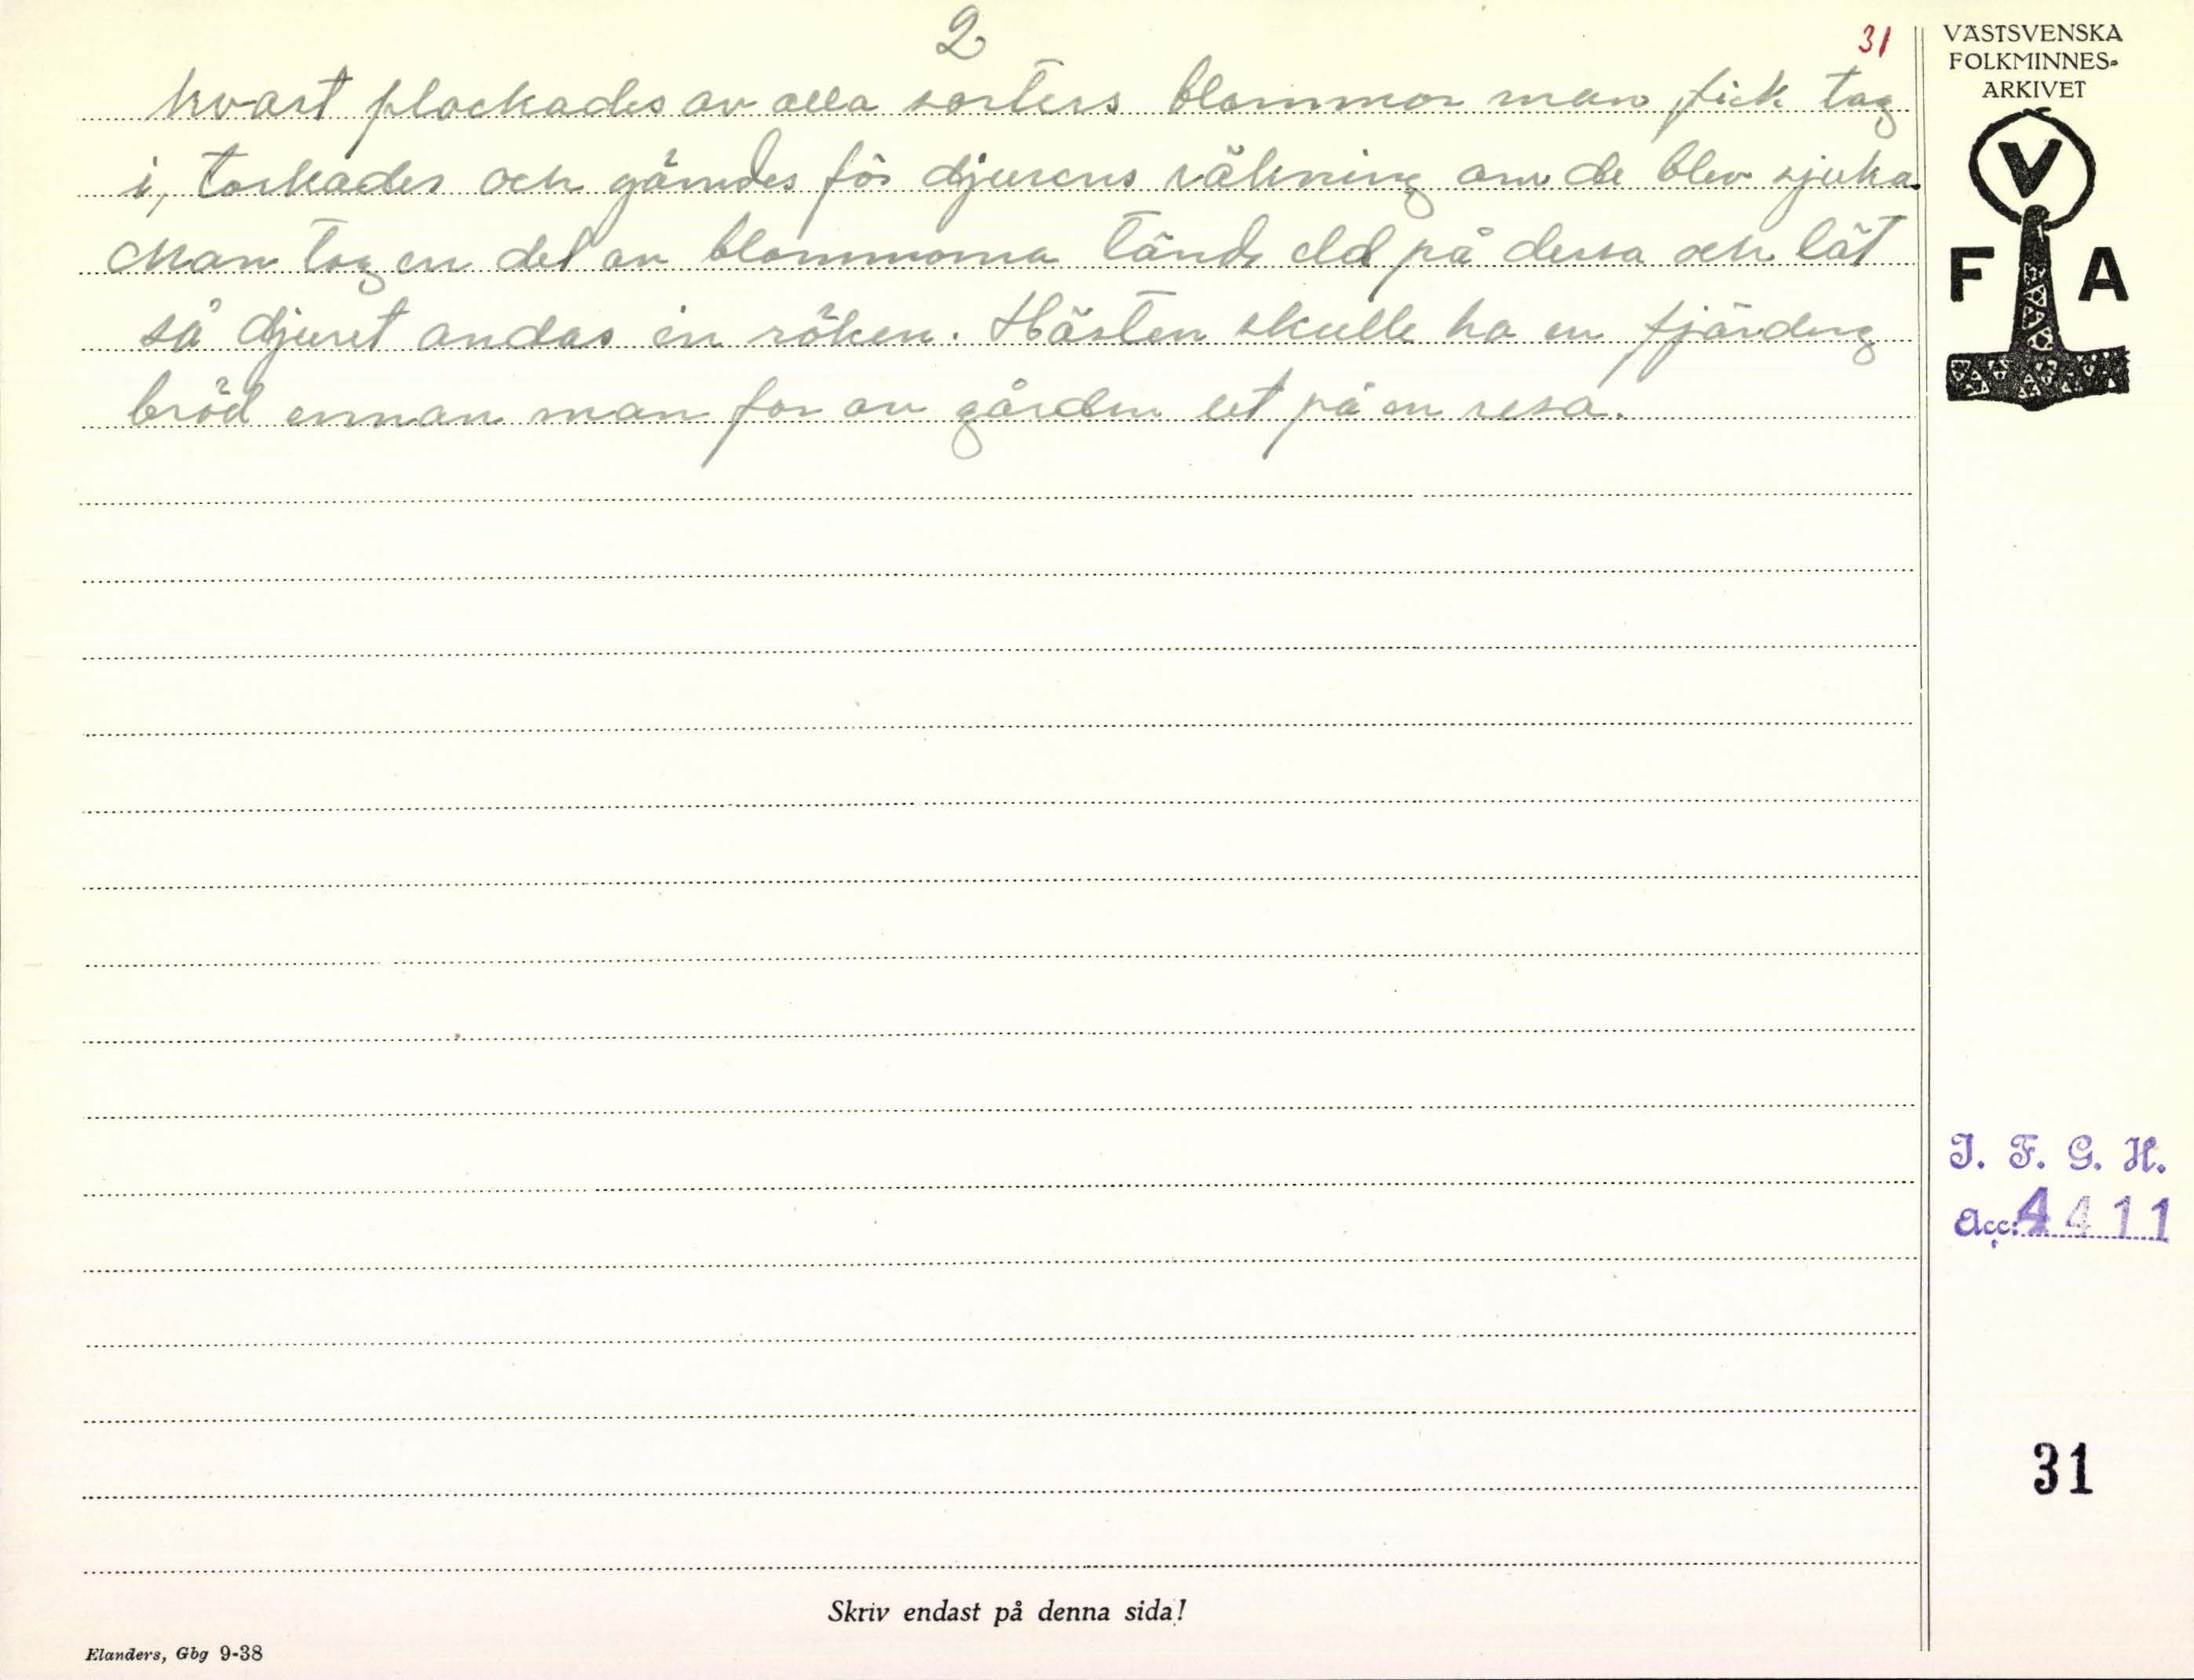 2
31
kvast plockades av alla sorters blommor man fick tag
i, torkades och gämdes för djurens räkning om de blev sjuka.
Man tog en del av blommorna tände eld på dessa och lät
så djuret andas in röken. Hästen skulle ha en fjärding
bröd ennan man for av gården ut på en resa.
VÄSTSVENSKA
FOLKMINNES-
ARKIVET
V
F A
I. F. G. H.
Acc: 4411
31
Skriv endast på denna sida!
Elanders, Gbg 9-38